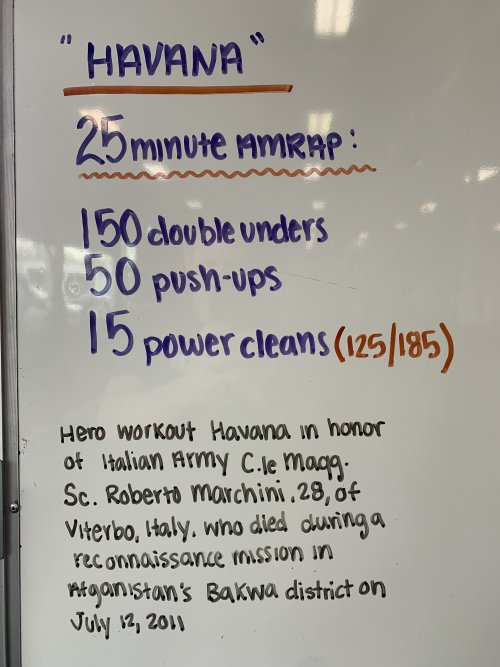 "HAVANA"
25 minute AMRAP:
150 double unders
50 push-ups
15 power cleans (125/185)
Hero workout Havana in honor
of Italian Army C.le Magg.
Sc. Roberto Marchini, 28, of
Viterbo, Italy. who died during a
reconnaissance mission in
Afganistan's Bakwa district on
July 12, 2011